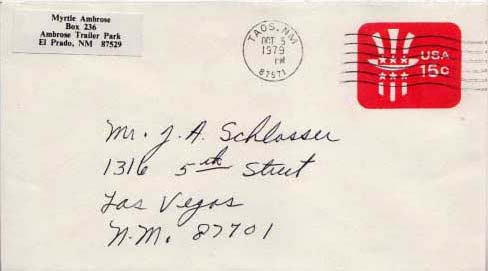 Myrtle Ambrose
Box 236
Ambrose Trailer Park
El Prado, NM 87529
TAOS, NM
OCT 5
1979
PM
87571
USA
15c
Mr. J. A. Schlosser
1316 5th Street
Las Vegas
N.M. 87701